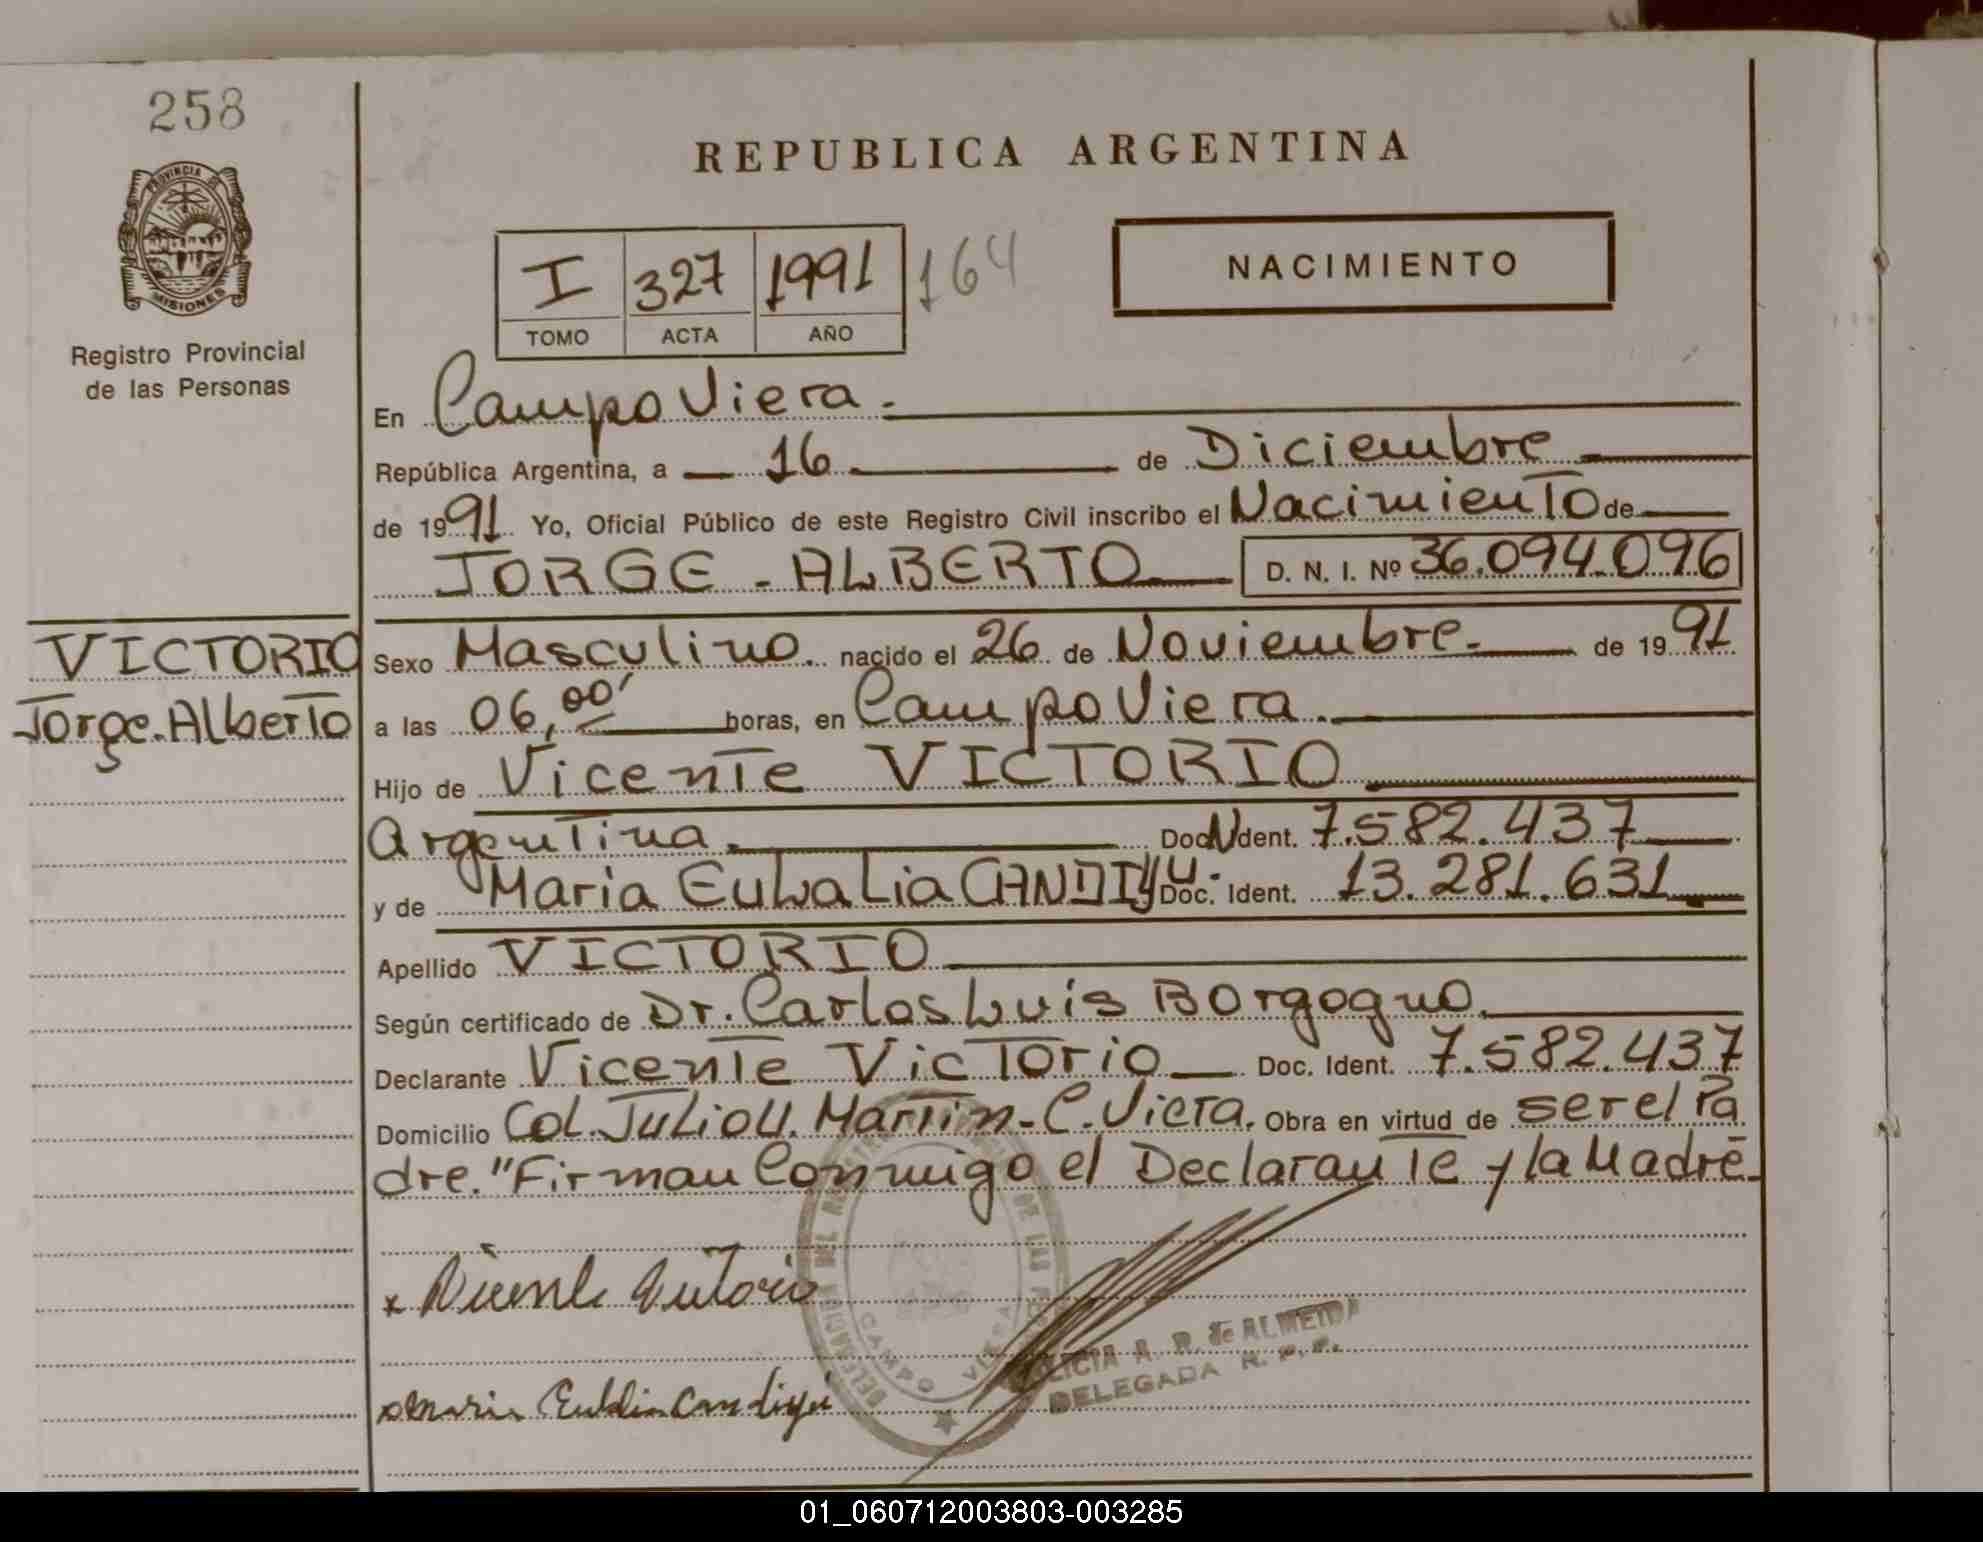 258
REPUBLICA ARGENTINA
PROVINCIA DE
MISIONES
Registro Provincial
de las Personas
I 327 1991 164
TOMO ACTA AÑO
NACIMIENTO
En Campo Viera.
República Argentina, a 16 de Diciembre
de 1991 Yo, Oficial Público de este Registro Civil inscribo el Nacimiento de
JORGE-ALBERTO D. N. I. Nº 36.094.096
VICTORIO
Jorge.Alberto
Sexo Masculino. nacido el 26 de Noviembre. de 1991
a las 06,00' horas, en Campo Viera.
Hijo de Vicente VICTORIO
Argentina. Doc. Ident. 7.582.437
y de Maria Eulalia CANDIYU. Doc. Ident. 13.281.631
Apellido VICTORIO
Según certificado de Dr. Carlos Luis Borgogno.
Declarante Vicente Victorio Doc. Ident. 7.582.437
Domicilio Col. Julio U. Martin-C. Viera. Obra en virtud de ser el Pa
dre. "Firman Conmigo el Declarante y la Madre.
x Vicente Victorio
Maria Eulalia Candiyú
CAMPO VIERA
A. R. de ALMEIDA
DELEGADA R. P. P.
01_060712003803-003285